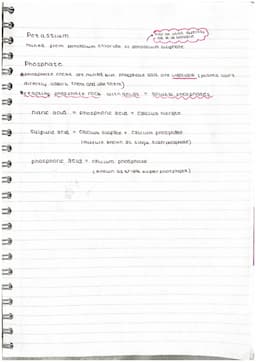 Potassium
mined from potassium chloride or potassium sulphate
Phosphate
phosphate rocks are mined but phosphate salts are insoluble (plants can't
directly absorb them and use them)
reacting phosphate rock with acids = soluble phosphates
nitric acid = phosphoric acid + calcium nitrate
sulfuric acid = calcium sulphate + calcium phosphate
(mixture known as single superphosphate)
phosphoric acid = calcium phosphate
(known as triple superphosphate)